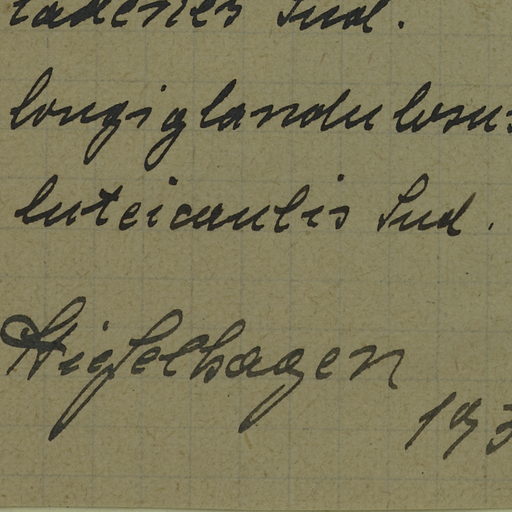 Sud.
longiglandulosus
luteicaulis Sud.
Stiefelhagen
193